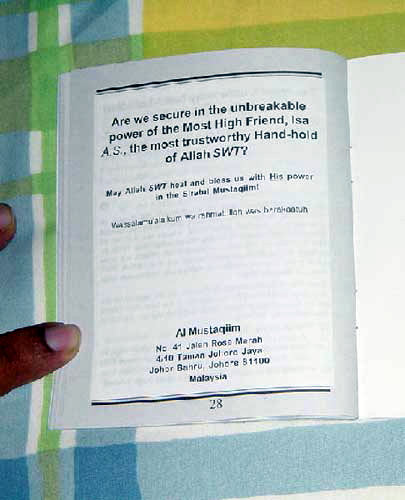 Are we secure in the unbreakable
power of the Most High Friend, Isa
A.S., the most trustworthy Hand-hold
of Allah SWT?
May Allah SWT heal and bless us with His power
in the Siratul Mustaqiim!
Wassalamu'alaikum
Al Mustaqiim
No. 41 Jalan Rosa Merah
4/10 Taman Johore Jaya
Johor Bahru, Johore 81100
Malaysia
28